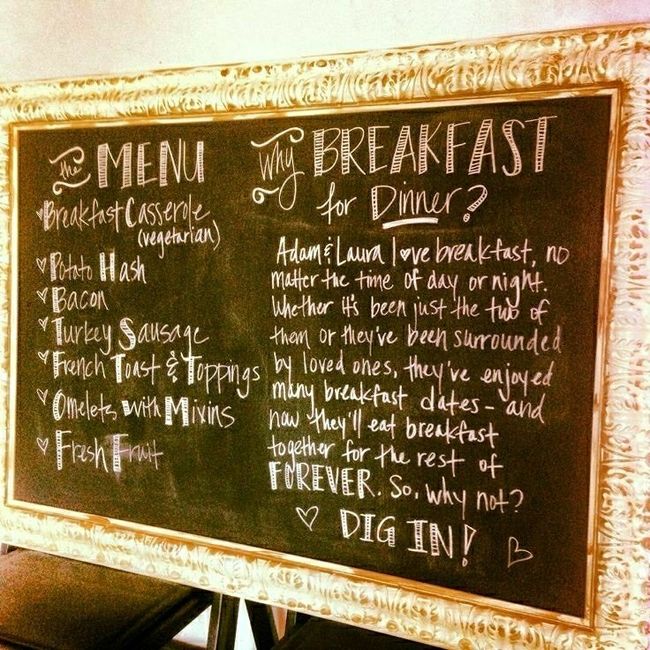 the MENU
Breakfast Casserole
(vegetarian)
Potato Hash
Bacon
Turkey Sausage
French Toast & Toppings
Omelets with Mixins
Fresh Fruit
why BREAKFAST
for Dinner?
Adam & Laura love breakfast, no
matter the time of day or night.
Whether it's been just the two of
them or they've been surrounded
by loved ones, they've enjoyed
many breakfast dates - and
now they'll eat breakfast
together for the rest of
FOREVER. So, why not?
DIG IN!